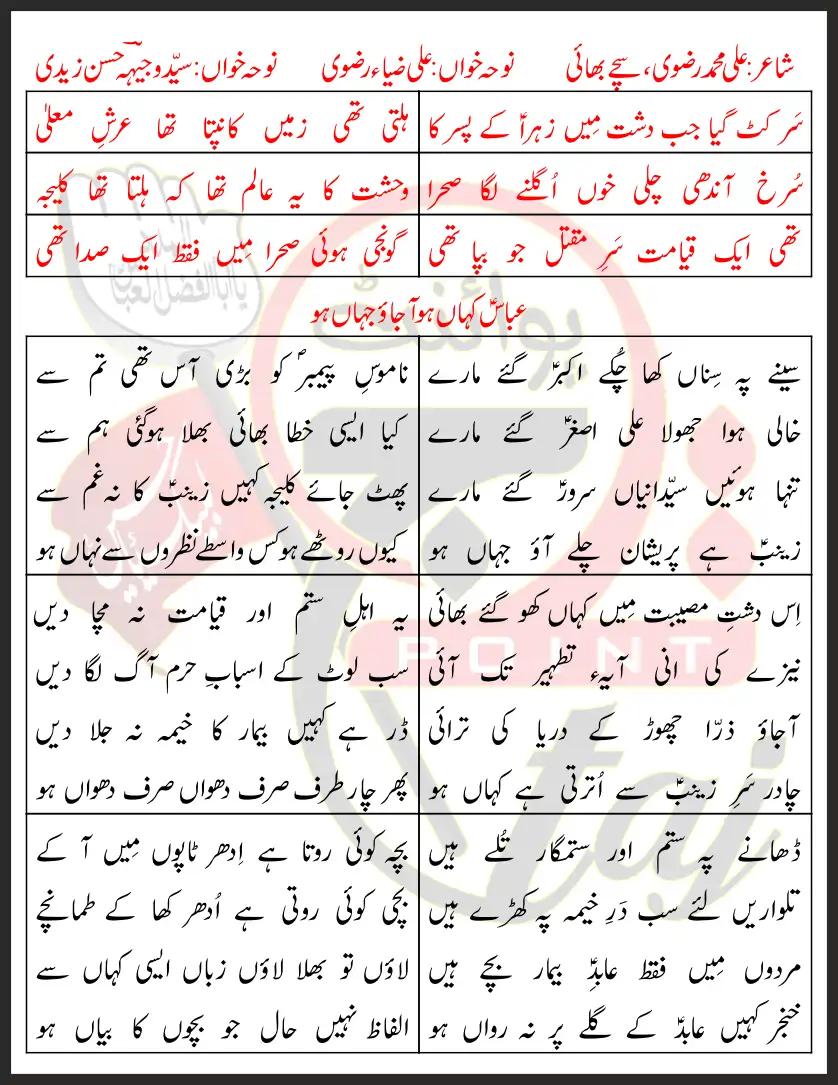 شاعر: علی محمد رضوی، سچے بھائی نوحہ خواں: علی ضیاء رضوی نوحہ خواں: سیّد وجیہہ حسن زیدی
سَر کٹ گیا جب دشت مِیں زہراؑ کے پسر کا ہلتی تھی زمیں کانپتا تھا عرشِ معلیٰ
سُرخ آندھی چلی خوں اُگلنے لگا صحرا وحشت کا یہ عالم تھا کہ ہلتا تھا کلیجہ
تھی ایک قیامت سَرِ مقتل جو بپا تھی گونجی ہوئی صحرا مِیں فقط ایک صدا تھی
عباسؑ کہاں ہو آ جاؤ جہاں ہو
سینے پہ سِناں کھا چُکے اکبرؑ گئے مارے ناموسِ پیمبرؐ کو بڑی آس تھی تم سے
خالی ہوا جھولا علی اصغرؑ گئے مارے کیا ایسی خطا بھائی بھلا ہوگئی ہم سے
تنہا ہوئیں سیّدانیاں سرورؑ گئے مارے پھٹ جائے کلیجہ کہیں زینبؑ کا نہ غم سے
زینبؑ ہے پریشان چلے آؤ جہاں ہو کیوں روٹھے ہو کس واسطے نظروں سے نہاں ہو
اِس دشتِ مصیبت مِیں کہاں کھو گئے بھائی یہ اہلِ ستم اور قیامت نہ مچا دیں
نیزے کی انی آیہء تطہیر تک آئی سب لوٹ کے اسبابِ حرم آگ لگا دیں
آجاؤ ذرّا چھوڑ کے دریا کی ترائی ڈر ہے کہیں بیمار کا خیمہ نہ جلا دیں
چادر سَرِ زینبؑ سے اُترتی ہے کہاں ہو پھر چار طرف صرف دھواں صرف دھواں ہو
ڈھانے پہ ستم اور ستمگار تُلے ہیں بچہ کوئی روتا ہے اِدھر ٹاپوں مِیں آ کے
تلواریں لئے سب دَرِ خیمہ پہ کھڑے ہیں بچی کوئی روتی ہے اُدھر کھا کے طمانچے
مردوں مِیں فقط عابدِؑ بیمار بچے ہیں لاؤں تو بھلا لاؤں زباں ایسی کہاں سے
خنجر کہیں عابدؑ کے گلے پر نہ رواں ہو الفاظ نہیں حال جو بچوں کا بیاں ہو
پوائنٹ
POINT
taj